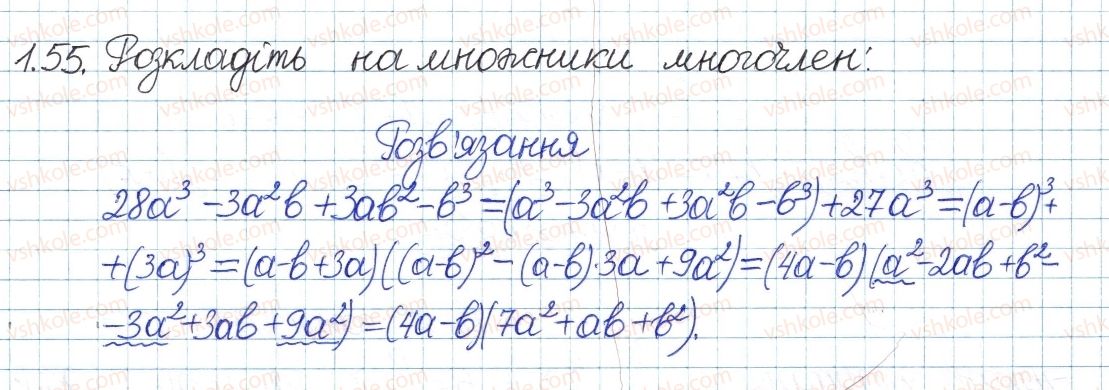 1.55. Розкладіть на множники многочлен:
Розв'язання
28a³ - 3a²b + 3ab² - b³ = (a³ - 3a²b + 3a²b - b³) + 27a³ = (a-b)³ +
+ (3a)³ = (a-b+3a)((a-b)² - (a-b)·3a + 9a²) = (4a-b)(a² - 2ab + b² -
- 3a² + 3ab + 9a²) = (4a-b)(7a² + ab + b²).